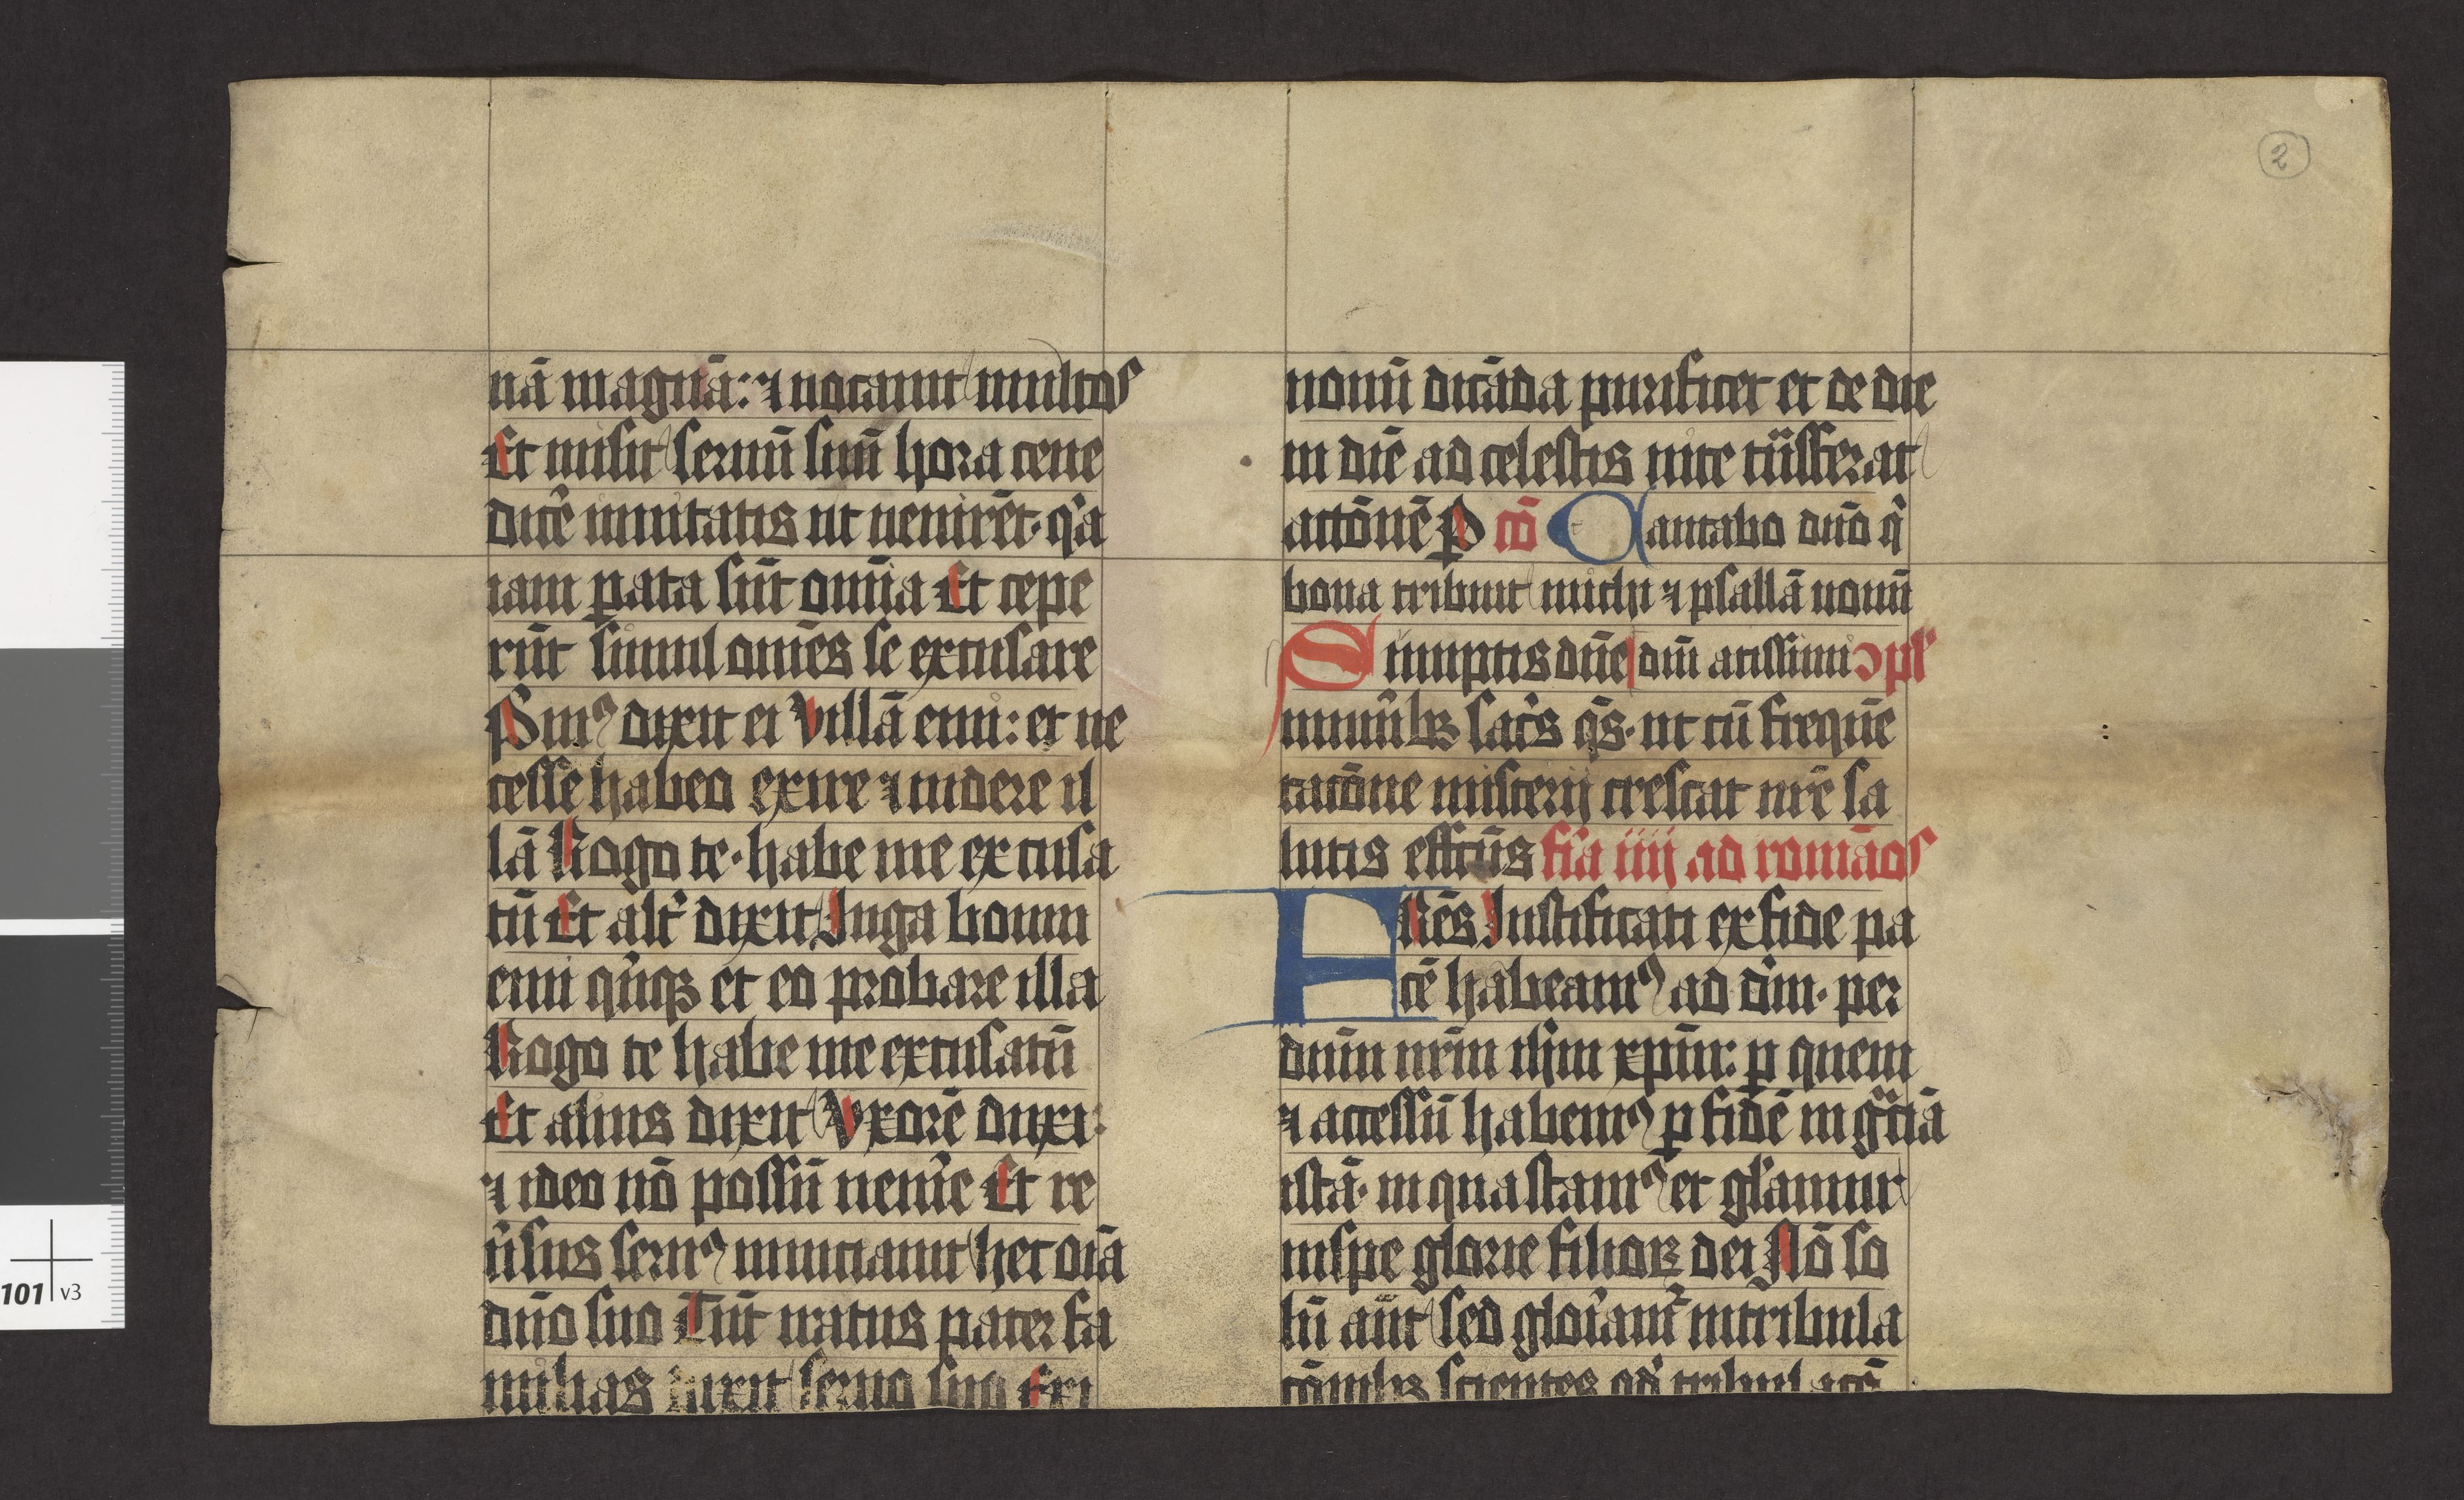 nā magnā: ⁊ uocauit multos
Et misit seruū suū hora cene
dicē inuitatis ut uenirēt· q͛a
iam ꝑata sūt omīa Et cepe
rūt simul om̄es se excusare
Pimꝰ dixit ei Villā emi: et ne
cesse habeo exire ⁊ uidere il
lā Rogo te· habe me excusa
tū Et alt͛ dixit Juga boum
emi qͥnqꝫ et eo probare illa
Rogo te habe me excusatū
Et alius dixit Vxorē duxi:
⁊ ideo nō possū uenīe Et re
ūsus seruꝰ nunciauit hec oīa
dn̄o suo Tūc iratus pater fa
milias dixit seruo suo Exi
nouū dicāda purificet et de die
in diē ad celestis uite tͥisferat
actōnē ꝑ cō Cantabo dn̄o qͥ
bona tribuit michi ⁊ psallā nouū
Sumptis dn̄e diū austissimi ↄpͤ
munēibꝫ sac͛s q̄s· ut cū frequē
tacōne misterij crescat nr̄e sa
lutis effctūs fīa iiij ad romāos
FRēs Justificati ex fide pa
cē habeamꝰ ad dm̄· per
dn̄m nr̄m ihm xp̄m: ꝑ quem
⁊ accessū habemꝰ ꝑ fidē in gͣciā
istā· in qua stamꝰ et gl̄amur
in spe glorie filioꝝ dei Nō so
lū aūt sed glo͛am̄ in tribula
cōnibꝫ scientes qd͛ tribulacō